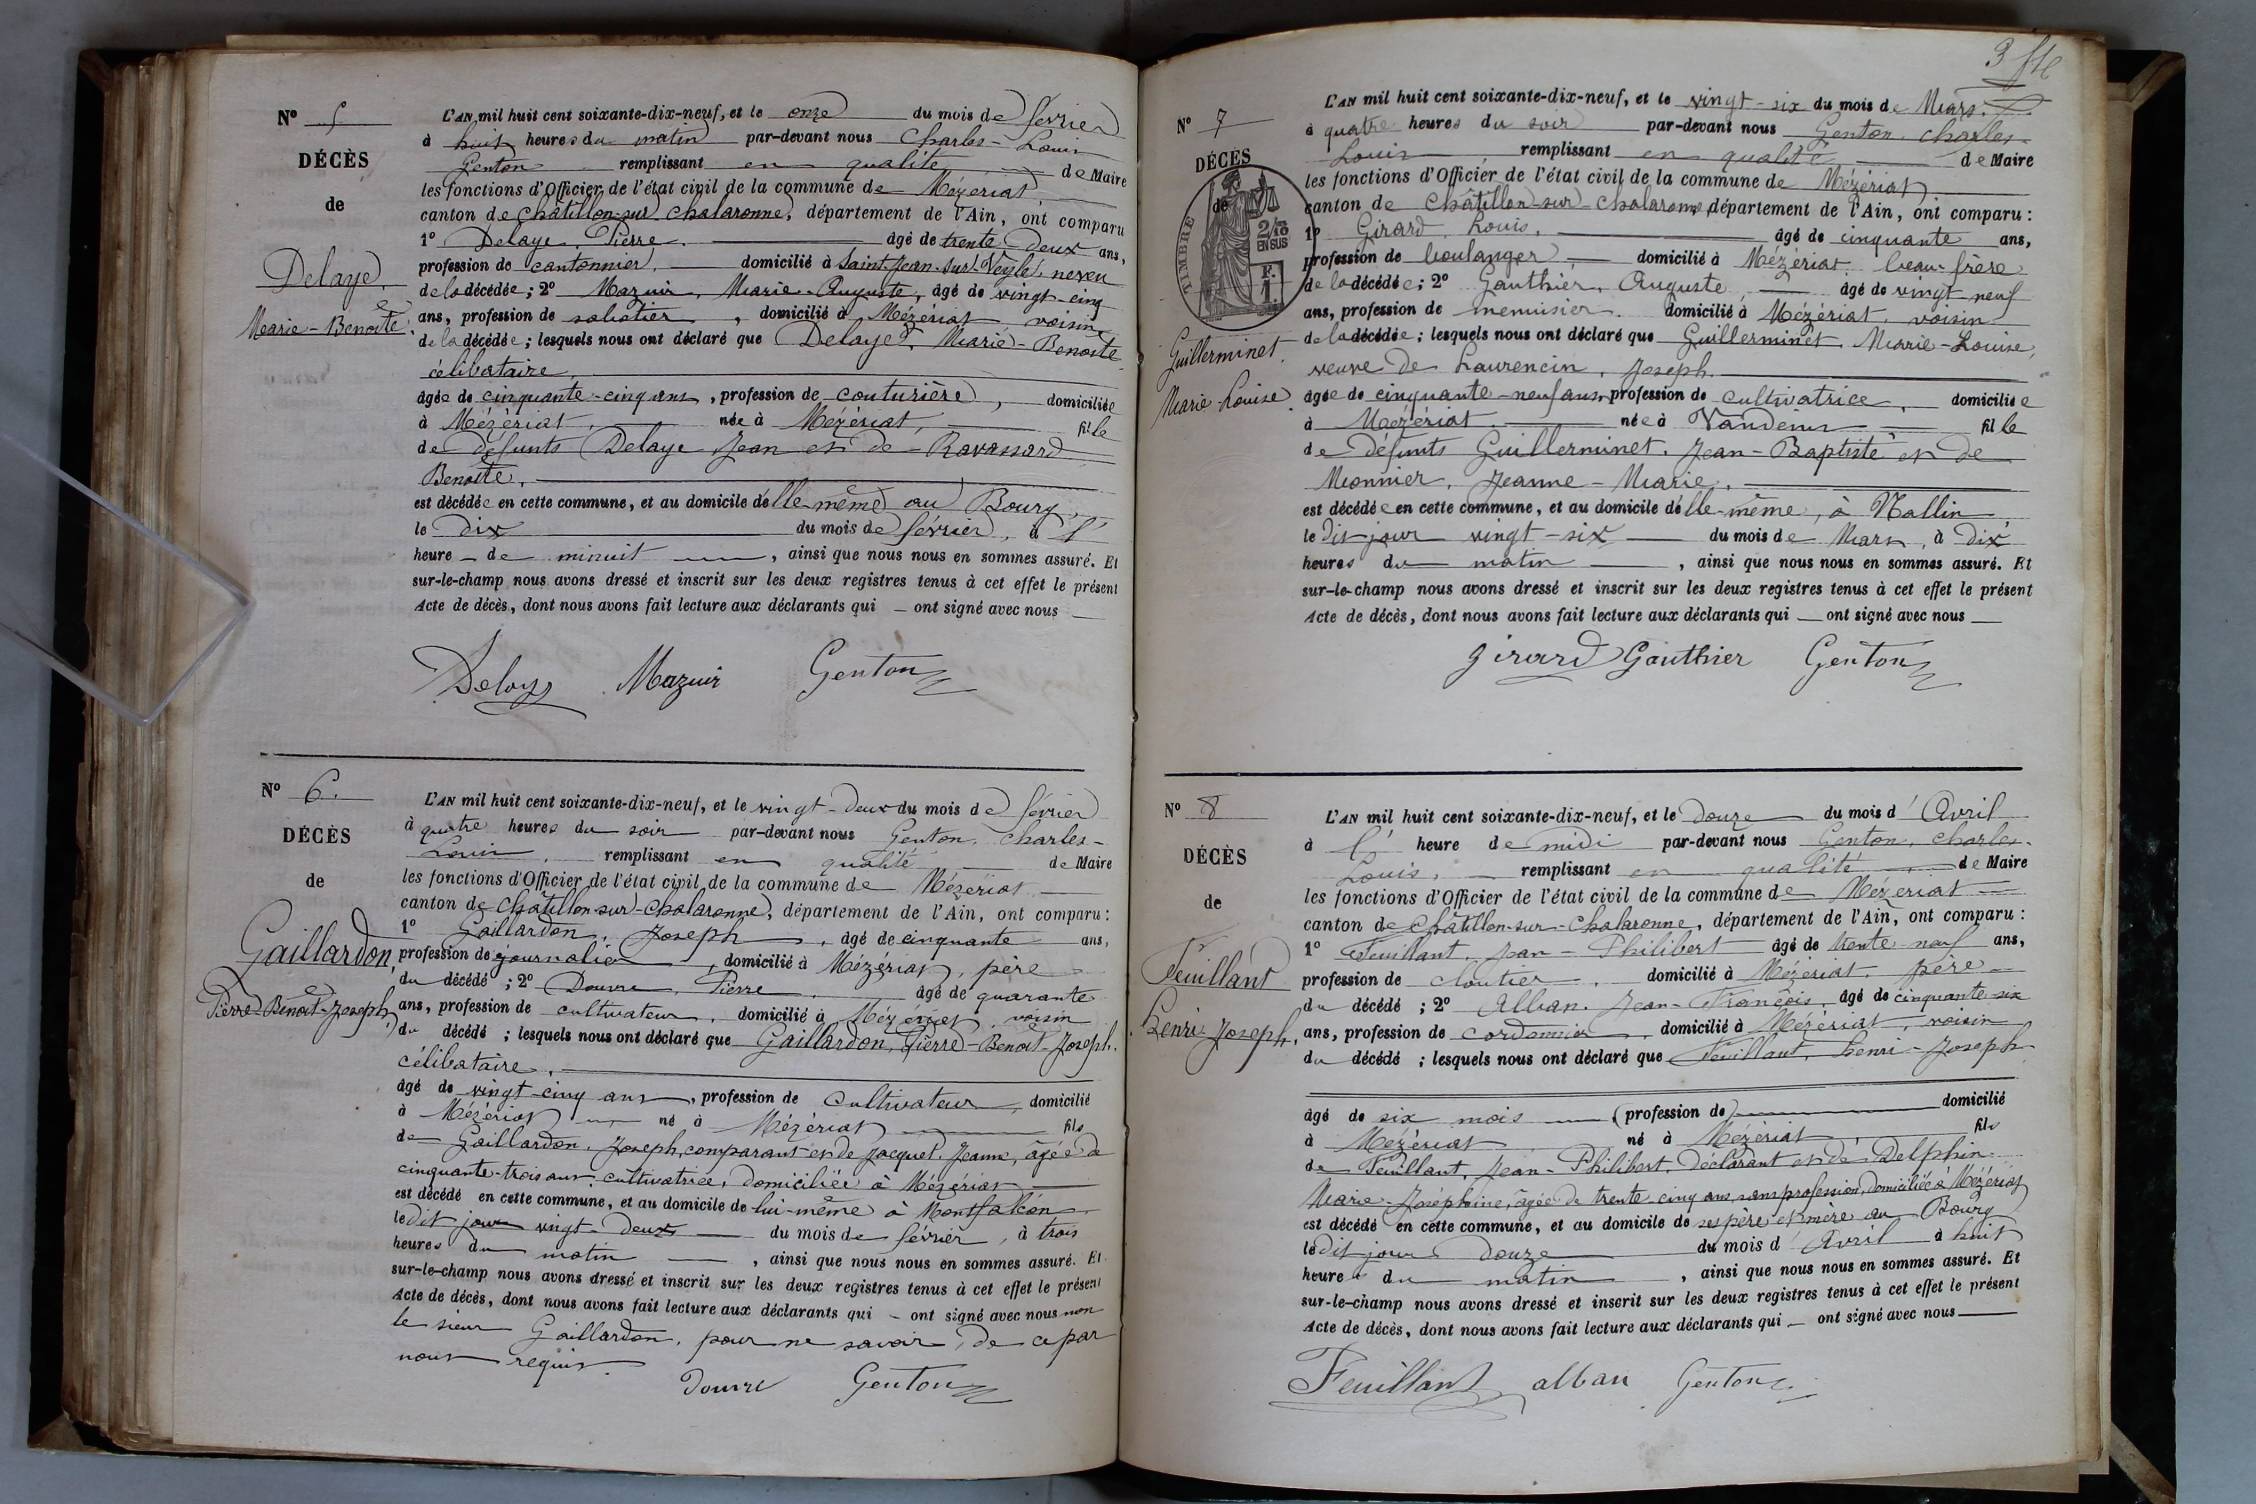 N° 5
DÉCÈS
de
Delaye,
Marie-Benoîte.
L'AN mil huit cent soixante-dix-neuf, et le onze du mois de février
à huit heures du matin par-devant nous Charles-Louis
Genton remplissant en qualité de Maire
les fonctions d'Officier de l'état civil de la commune de Mézériat
canton de Châtillon-sur-Chalaronne, département de l'Ain, ont comparu
1° Delaye, Pierre. âgé de trente-deux ans,
profession de cantonnier, domicilié à Saint-Jean-sur-Veyle, neveu
de la décédée; 2° Mazuir, Marie-Auguste, âgé de vingt-cinq
ans, profession de sabotier, domicilié à Mézériat voisin
de la décédée; lesquels nous ont déclaré que Delaye, Marie-Benoîte
célibataire,
âgée de cinquante-cinq ans, profession de couturière, domiciliée
à Mézériat, née à Mézériat, fille
de défunts Delaye Jean et de Ravassard
Benoîte,
est décédée en cette commune, et au domicile d'elle-même au Bourg,
le dix du mois de février, à l'
heure de minuit, ainsi que nous nous en sommes assuré. Et
sur-le-champ nous avons dressé et inscrit sur les deux registres tenus à cet effet le présent
Acte de décès, dont nous avons fait lecture aux déclarants qui ont signé avec nous
Delaye Mazuir Genton
N° 6.
DÉCÈS
de
Gaillardon,
Pierre-Benoît-Joseph,
L'AN mil huit cent soixante-dix-neuf, et le vingt-deux du mois de février
à quatre heures du soir par-devant nous Genton, Charles-
Louis, remplissant en qualité de Maire
les fonctions d'Officier de l'état civil de la commune de Mézériat
canton de Châtillon-sur-Chalaronne, département de l'Ain, ont comparu:
1° Gaillardon, Joseph, âgé de cinquante ans,
profession de journalier, domicilié à Mézériat, père
du décédé; 2° Douvre, Pierre, âgé de quarante
ans, profession de cultivateur, domicilié à Mézériat, voisin
du décédé; lesquels nous ont déclaré que Gaillardon, Pierre-Benoît-Joseph.
célibataire,
âgé de vingt-cinq ans, profession de cultivateur, domicilié
à Mézériat né à Mézériat fils
de Gaillardon, Joseph, comparant et de Jacquet, Jeanne, âgée de
cinquante-trois ans, cultivatrice, domiciliée à Mézériat
est décédé en cette commune, et au domicile de lui-même à Montfalcon
le dit jour vingt-deux du mois de février, à trois
heures du matin, ainsi que nous nous en sommes assuré. Et
sur-le-champ nous avons dressé et inscrit sur les deux registres tenus à cet effet le présent
Acte de décès, dont nous avons fait lecture aux déclarants qui ont signé avec nous non
le sieur Gaillardon, pour ne savoir, de ce par
nous requis.
Douvre Genton
N° 7
DÉCÈS
de
TIMBRE
2/10
EN SUS
F.
1.
Guillerminet,
Marie-Louise.
L'AN mil huit cent soixante-dix-neuf, et le vingt-six du mois de Mars
à quatre heures du soir par-devant nous Genton, Charles-
Louis remplissant en qualité de Maire
les fonctions d'Officier de l'état civil de la commune de Mézériat
canton de Châtillon-sur-Chalaronne, département de l'Ain, ont comparu:
1° Girard, Louis, âgé de cinquante ans,
profession de boulanger, domicilié à Mézériat, beau-frère
de la décédée; 2° Gauthier, Auguste, âgé de vingt-neuf
ans, profession de menuisier, domicilié à Mézériat, voisin
de la décédée; lesquels nous ont déclaré que Guillerminet, Marie-Louise,
veuve de Laurencin, Joseph.
âgée de cinquante-neuf ans, profession de cultivatrice, domiciliée
à Mézériat. née à Vandeins fille
de défunts Guillerminet, Jean-Baptiste et de
Monnier, Jeanne-Marie,
est décédée en cette commune, et au domicile d'elle-même, à Vallin,
le dit jour vingt-six du mois de Mars, à dix
heures du matin, ainsi que nous nous en sommes assuré. Et
sur-le-champ nous avons dressé et inscrit sur les deux registres tenus à cet effet le présent
Acte de décès, dont nous avons fait lecture aux déclarants qui ont signé avec nous
Girard Gauthier Genton
N° 8
DÉCÈS
de
Feuillant
Henri-Joseph.
L'AN mil huit cent soixante-dix-neuf, et le douze du mois d'Avril
à l' heure de midi par-devant nous Genton, Charles-
Louis, remplissant en qualité de Maire
les fonctions d'Officier de l'état civil de la commune de Mézériat
canton de Châtillon-sur-Chalaronne, département de l'Ain, ont comparu:
1° Feuillant, Jean-Philibert âgé de trente-neuf ans,
profession de cloutier, domicilié à Mézériat. père
du décédé; 2° Alban, Jean-François, âgé de cinquante-six
ans, profession de cordonnier, domicilié à Mézériat, voisin
du décédé; lesquels nous ont déclaré que Feuillant, Henri-Joseph
âgé de six mois (profession de) domicilié
à Mézériat né à Mézériat fils
de Feuillant, Jean-Philibert, déclarant et de Delphin
Marie-Joséphine, âgée de trente-cinq ans, sans profession, domiciliée à Mézériat
est décédé en cette commune, et au domicile de ses père et mère au Bourg
le dit jour douze du mois d'Avril à huit
heures du matin, ainsi que nous nous en sommes assuré. Et
sur-le-champ nous avons dressé et inscrit sur les deux registres tenus à cet effet le présent
Acte de décès, dont nous avons fait lecture aux déclarants qui ont signé avec nous
Feuillant alban Genton